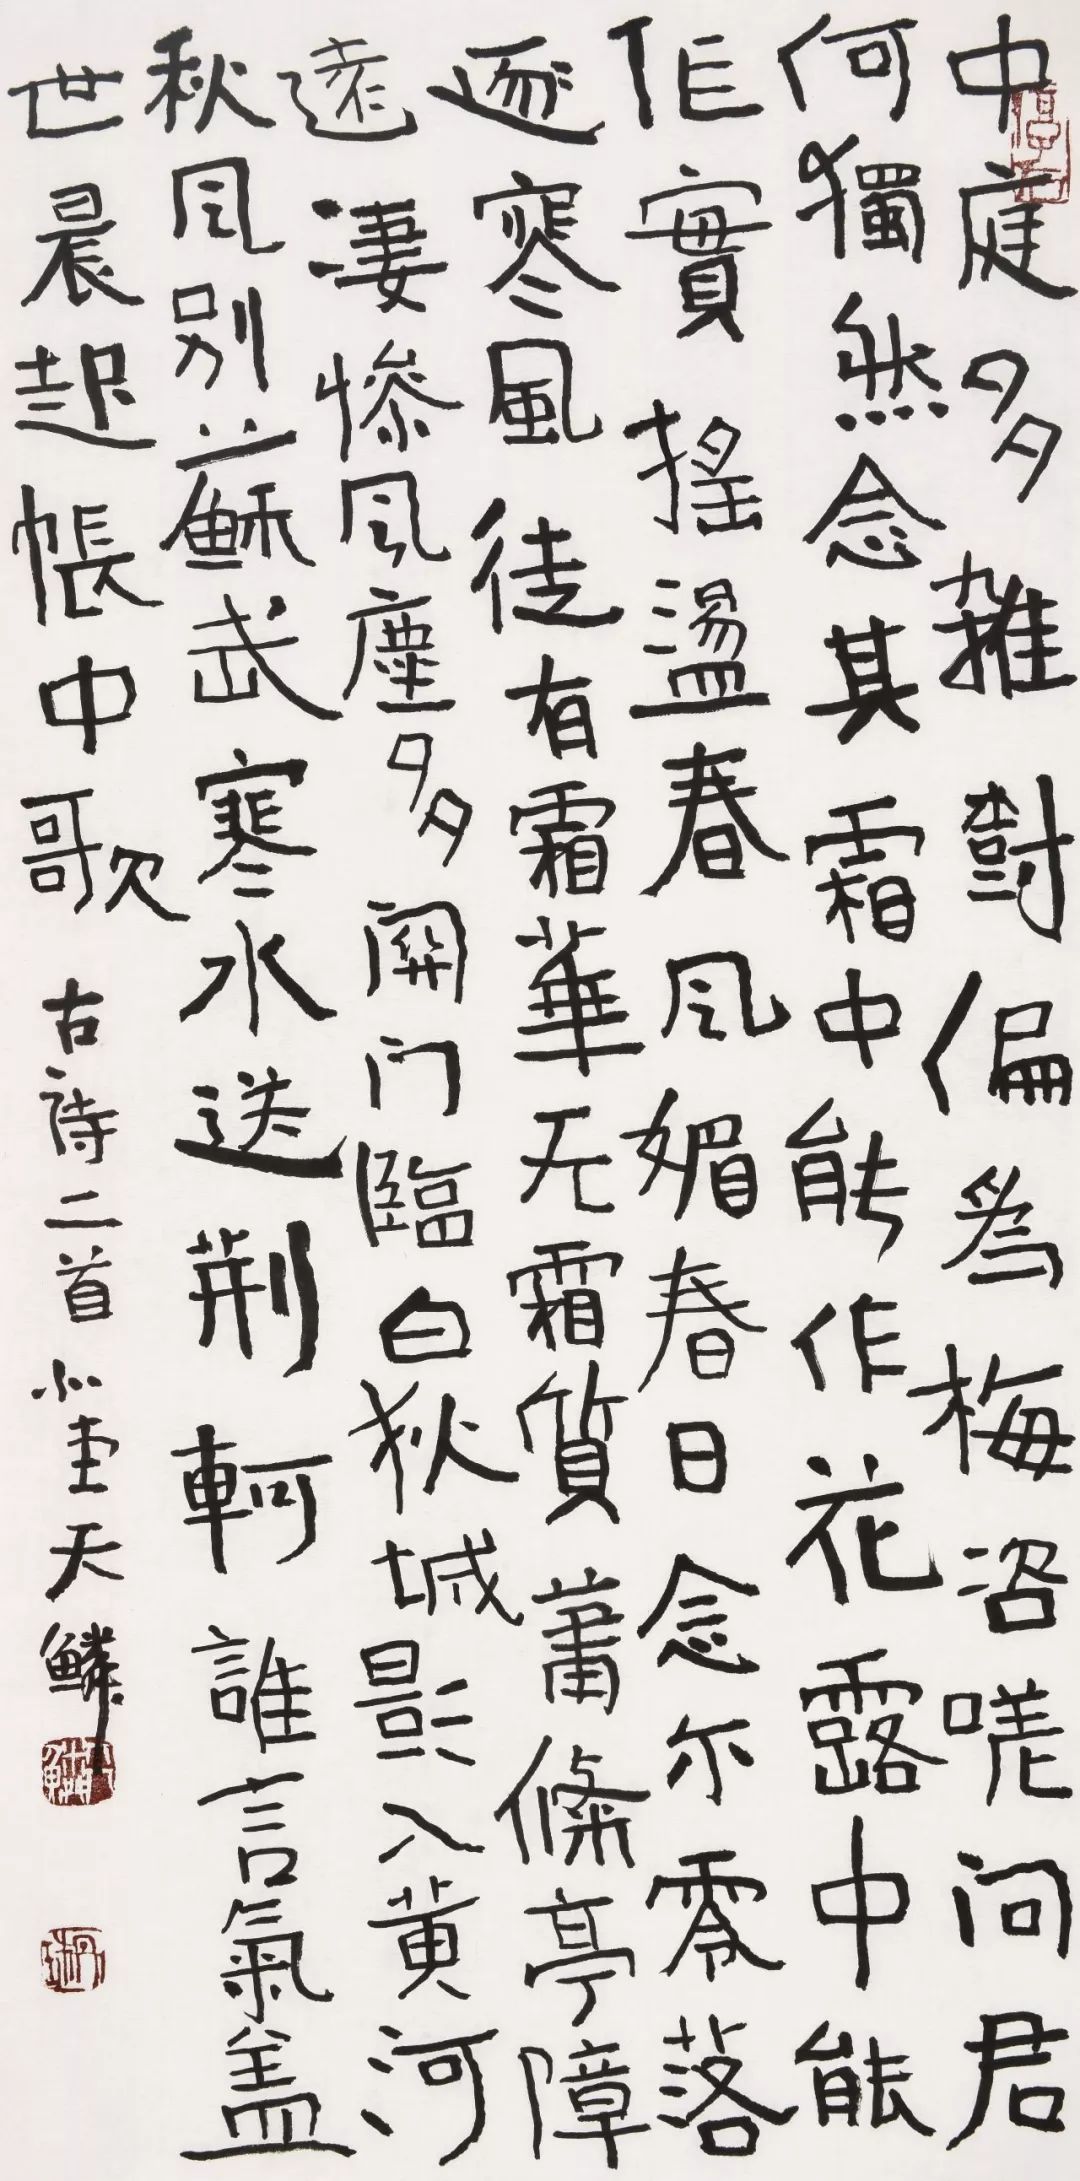 中庭多雜樹偏爲梅咨嗟问君
何獨然念其霜中能作花露中能
作實搖盪春风媚春日念尔零落
逐寒風徒有霜華无霜質蕭條亭障
遠凄慘风塵多關门臨白狄城影入黄河
秋风别蘇武寒水送荆軻誰言氣盖
世晨起帳中歌
古诗二首
天鳞